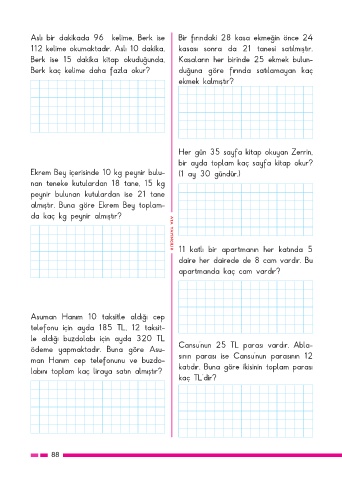 Aslı bir dakikada 96 kelime, Berk ise
112 kelime okumaktadır. Aslı 10 dakika,
Berk ise 15 dakika kitap okuduğunda,
Berk kaç kelime daha fazla okur?
Ekrem Bey içerisinde 10 kg peynir bulu-
nan teneke kutulardan 18 tane, 15 kg
peynir bulunan kutulardan ise 21 tane
almıştır. Buna göre Ekrem Bey toplam-
da kaç kg peynir almıştır?
Asuman Hanım 10 taksitle aldığı cep
telefonu için ayda 185 TL, 12 taksit-
le aldığı buzdolabı için ayda 320 TL
ödeme yapmaktadır. Buna göre Asu-
man Hanım cep telefonunu ve buzdo-
labını toplam kaç liraya satın almıştır?
Bir fırındaki 28 kasa ekmeğin önce 24
kasası sonra da 21 tanesi satılmıştır.
Kasaların her birinde 25 ekmek bulun-
duğuna göre fırında satılamayan kaç
ekmek kalmıştır?
Her gün 35 sayfa kitap okuyan Zerrin,
bir ayda toplam kaç sayfa kitap okur?
(1 ay 30 gündür.)
11 katlı bir apartmanın her katında 5
daire her dairede de 8 cam vardır. Bu
apartmanda kaç cam vardır?
Cansu'nun 25 TL parası vardır. Abla-
sının parası ise Cansu'nun parasının 12
katıdır. Buna göre ikisinin toplam parası
kaç TL'dir?
88